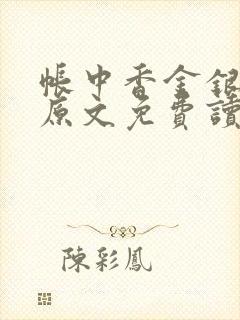 帳中香金銀
原文免費讀
陳彩鳳